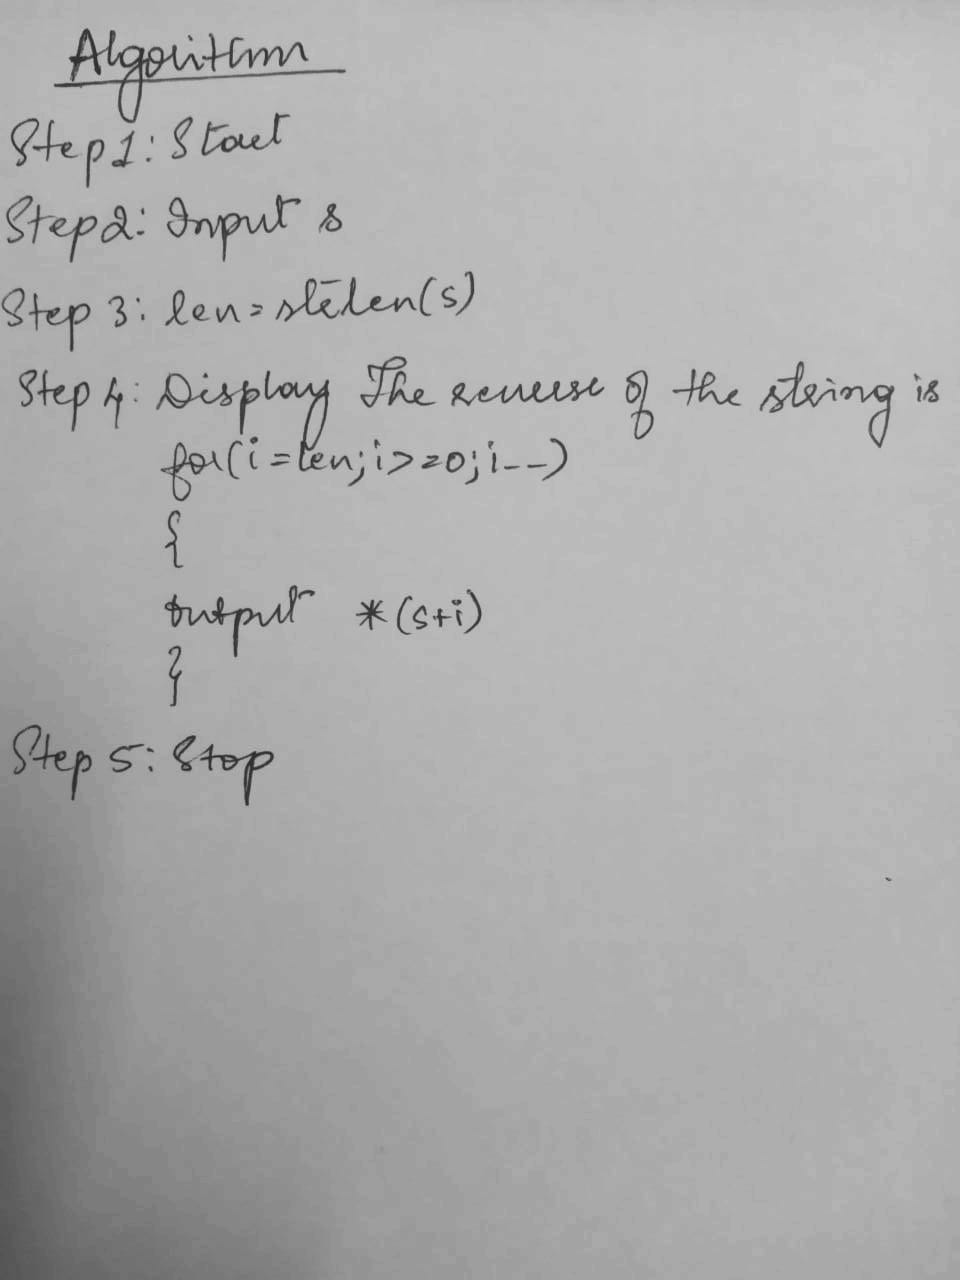 Algorithm
Step 1: Start
Step 2: Input s
Step 3: len=strlen(s)
Step 4: Display The reverse of the string is
for(i=len;i>=0;i--)
{
output *(s+i)
}
Step 5: Stop